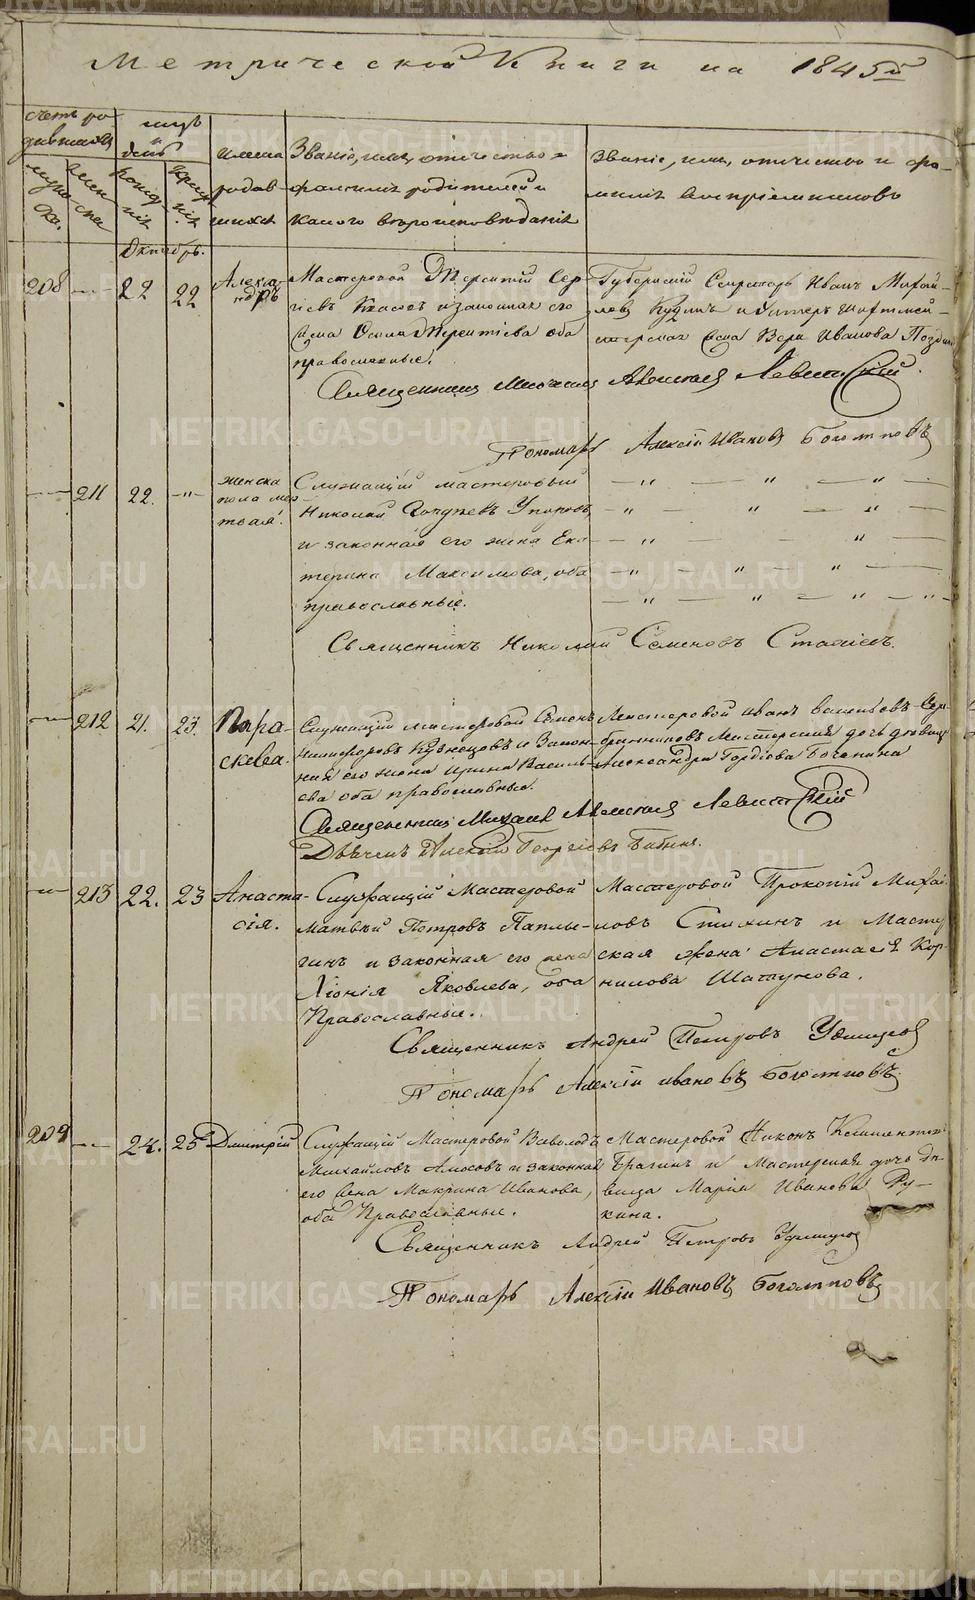 Метрической Книги на 1845й
счетъ ро
дившихся
муже
ска
жен
ска
мѣсяцъ
и день
рожде
нія
креще
нія
имена
родив
шихся
Званіе, имя, отчество и
фамилія родителей и
какого вѣроисповѣданія
Званіе, имя, отчество и фа-
милія воспріемниковъ
Октябрь.
208 22 22 Алекса
ндръ
Мастеровой Терентій Сер-
гіевъ и законная его
жена Терентіева оба
православные.
Губернскій Секретарь Иванъ Михай-
ловъ
Вера Иванова
Священникъ Михаилъ Алексіевъ Левитскій.
Пономарь Алексій Ивановъ Боголѣповъ
211 22. -"- женска
пола мер
твая.
Служащій мастеровый
Николай Упоровъ,
и законная его жена Ека-
терина Максимова, оба
православные.
Священникъ Николай Семеновъ Стасіевъ.
212 21. 23. Пара
скева.
Служащій мастеровой Симонъ
Никифоровъ Кузнецовъ и Закон-
ная его жена Ирина Василь-
ева оба православные.
Мастеровой Иванъ Васильевъ Сер-
бринниковъ Мастерская дочь дѣвица
Александра Гордіева
Священникъ Михаилъ Алексіевъ Левитскій
Дьячекъ Алексій Георгіевъ
213 22. 23 Анаста-
сія.
Служащій Мастеровой
Матвей Петровъ Паплы-
гинъ и законная его жена
Яковлева, оба
Православные.
Мастеровой Прокопій Михай
ловъ Стихинъ и Масте
ская жена Анастасія Кор
нилова Шатунова.
Священникъ Андрей Петровъ Удинцовъ
Пономарь Алексій Ивановъ Боголѣповъ.
209 24. 25 Дмитрій
Служащій Мастеровой Всеволодъ
Михайловъ Амосовъ и законная
его жена Макрина Иванова,
оба Православные.
Мастеровой Никонъ
Брагинъ и Мастерская дочь дѣ
вица Марія Иванова Ру-
кина.
Священникъ Андрей Петровъ Удинцовъ
Пономарь Алексій Ивановъ Боголѣповъ
METRIKI.GASO-URAL.RU